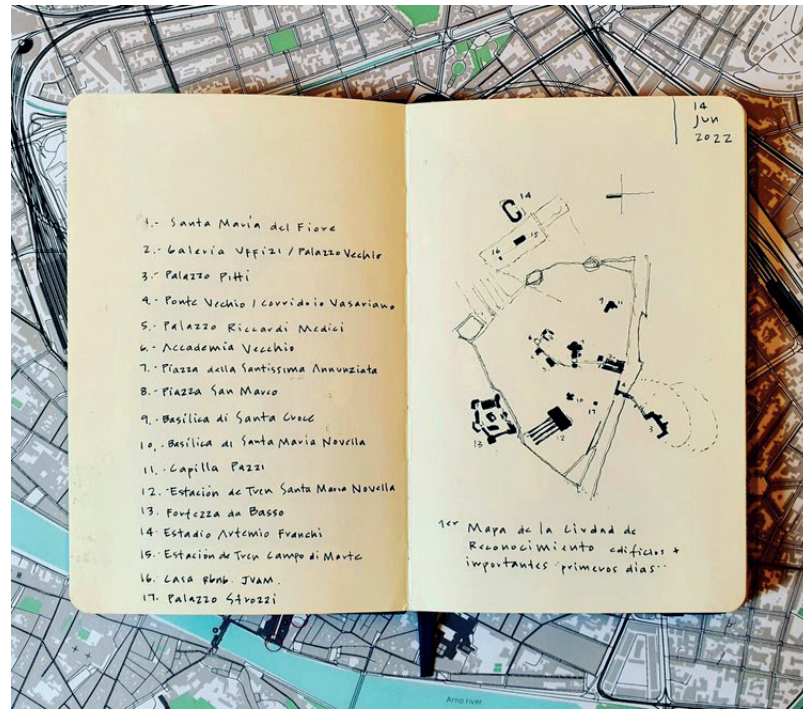 1.- Santa María del Fiore
2.- Galeria Uffizi / Palazzo Vechio
3.- Palazzo Pitti
4.- Ponte Vechio / Corridoio Vasariano
5.- Palazzo Riccardi Medici
6.- Accademia Vecchio
7.- Piazza della Santissima Annunziata
8.- Piazza San Marco
9.- Basilica di Santa Croce
10.- Basilica di Santa Maria Novella
11.- Capilla Pazzi
12.- Estación de Tren Santa Maria Novella
13. Fortezza da Basso
14. Estadio Artemio Franchi
15. Estación de Tren Campo di Marte
16. Casa Rbnb. JVAM.
17. Palazzo Strozzi
14
Jun
2022
14
15
16
9
11
10
17
12
13
4
3
1er Mapa de la Ciudad de
Reconocimiento edificios +
importantes "primeros dias"
Arno river